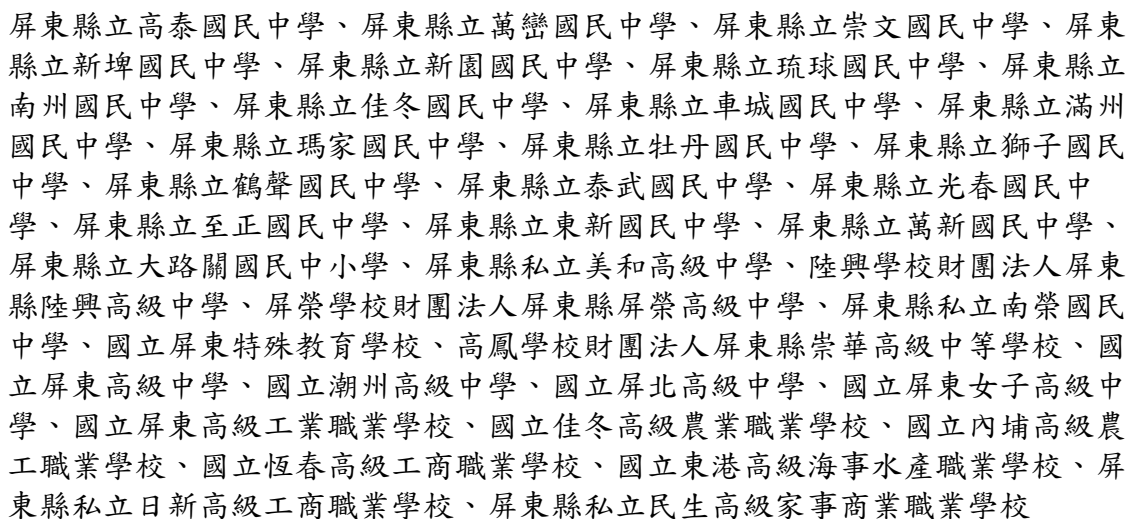 屏東縣立高泰國民中學、屏東縣立萬巒國民中學、屏東縣立崇文國民中學、屏東
縣立新埤國民中學、屏東縣立新園國民中學、屏東縣立琉球國民中學、屏東縣立
南州國民中學、屏東縣立佳冬國民中學、屏東縣立車城國民中學、屏東縣立滿州
國民中學、屏東縣立瑪家國民中學、屏東縣立牡丹國民中學、屏東縣立獅子國民
中學、屏東縣立鶴聲國民中學、屏東縣立泰武國民中學、屏東縣立光春國民中
學、屏東縣立至正國民中學、屏東縣立東新國民中學、屏東縣立萬新國民中學、
屏東縣立大路關國民中小學、屏東縣私立美和高級中學、陸興學校財團法人屏東
縣陸興高級中學、屏榮學校財團法人屏東縣屏榮高級中學、屏東縣私立南榮國民
中學、國立屏東特殊教育學校、高鳳學校財團法人屏東縣崇華高級中等學校、國
立屏東高級中學、國立潮州高級中學、國立屏北高級中學、國立屏東女子高級中
學、國立屏東高級工業職業學校、國立佳冬高級農業職業學校、國立內埔高級農
工職業學校、國立恆春高級工商職業學校、國立東港高級海事水產職業學校、屏
東縣私立日新高級工商職業學校、屏東縣私立民生高級家事商業職業學校